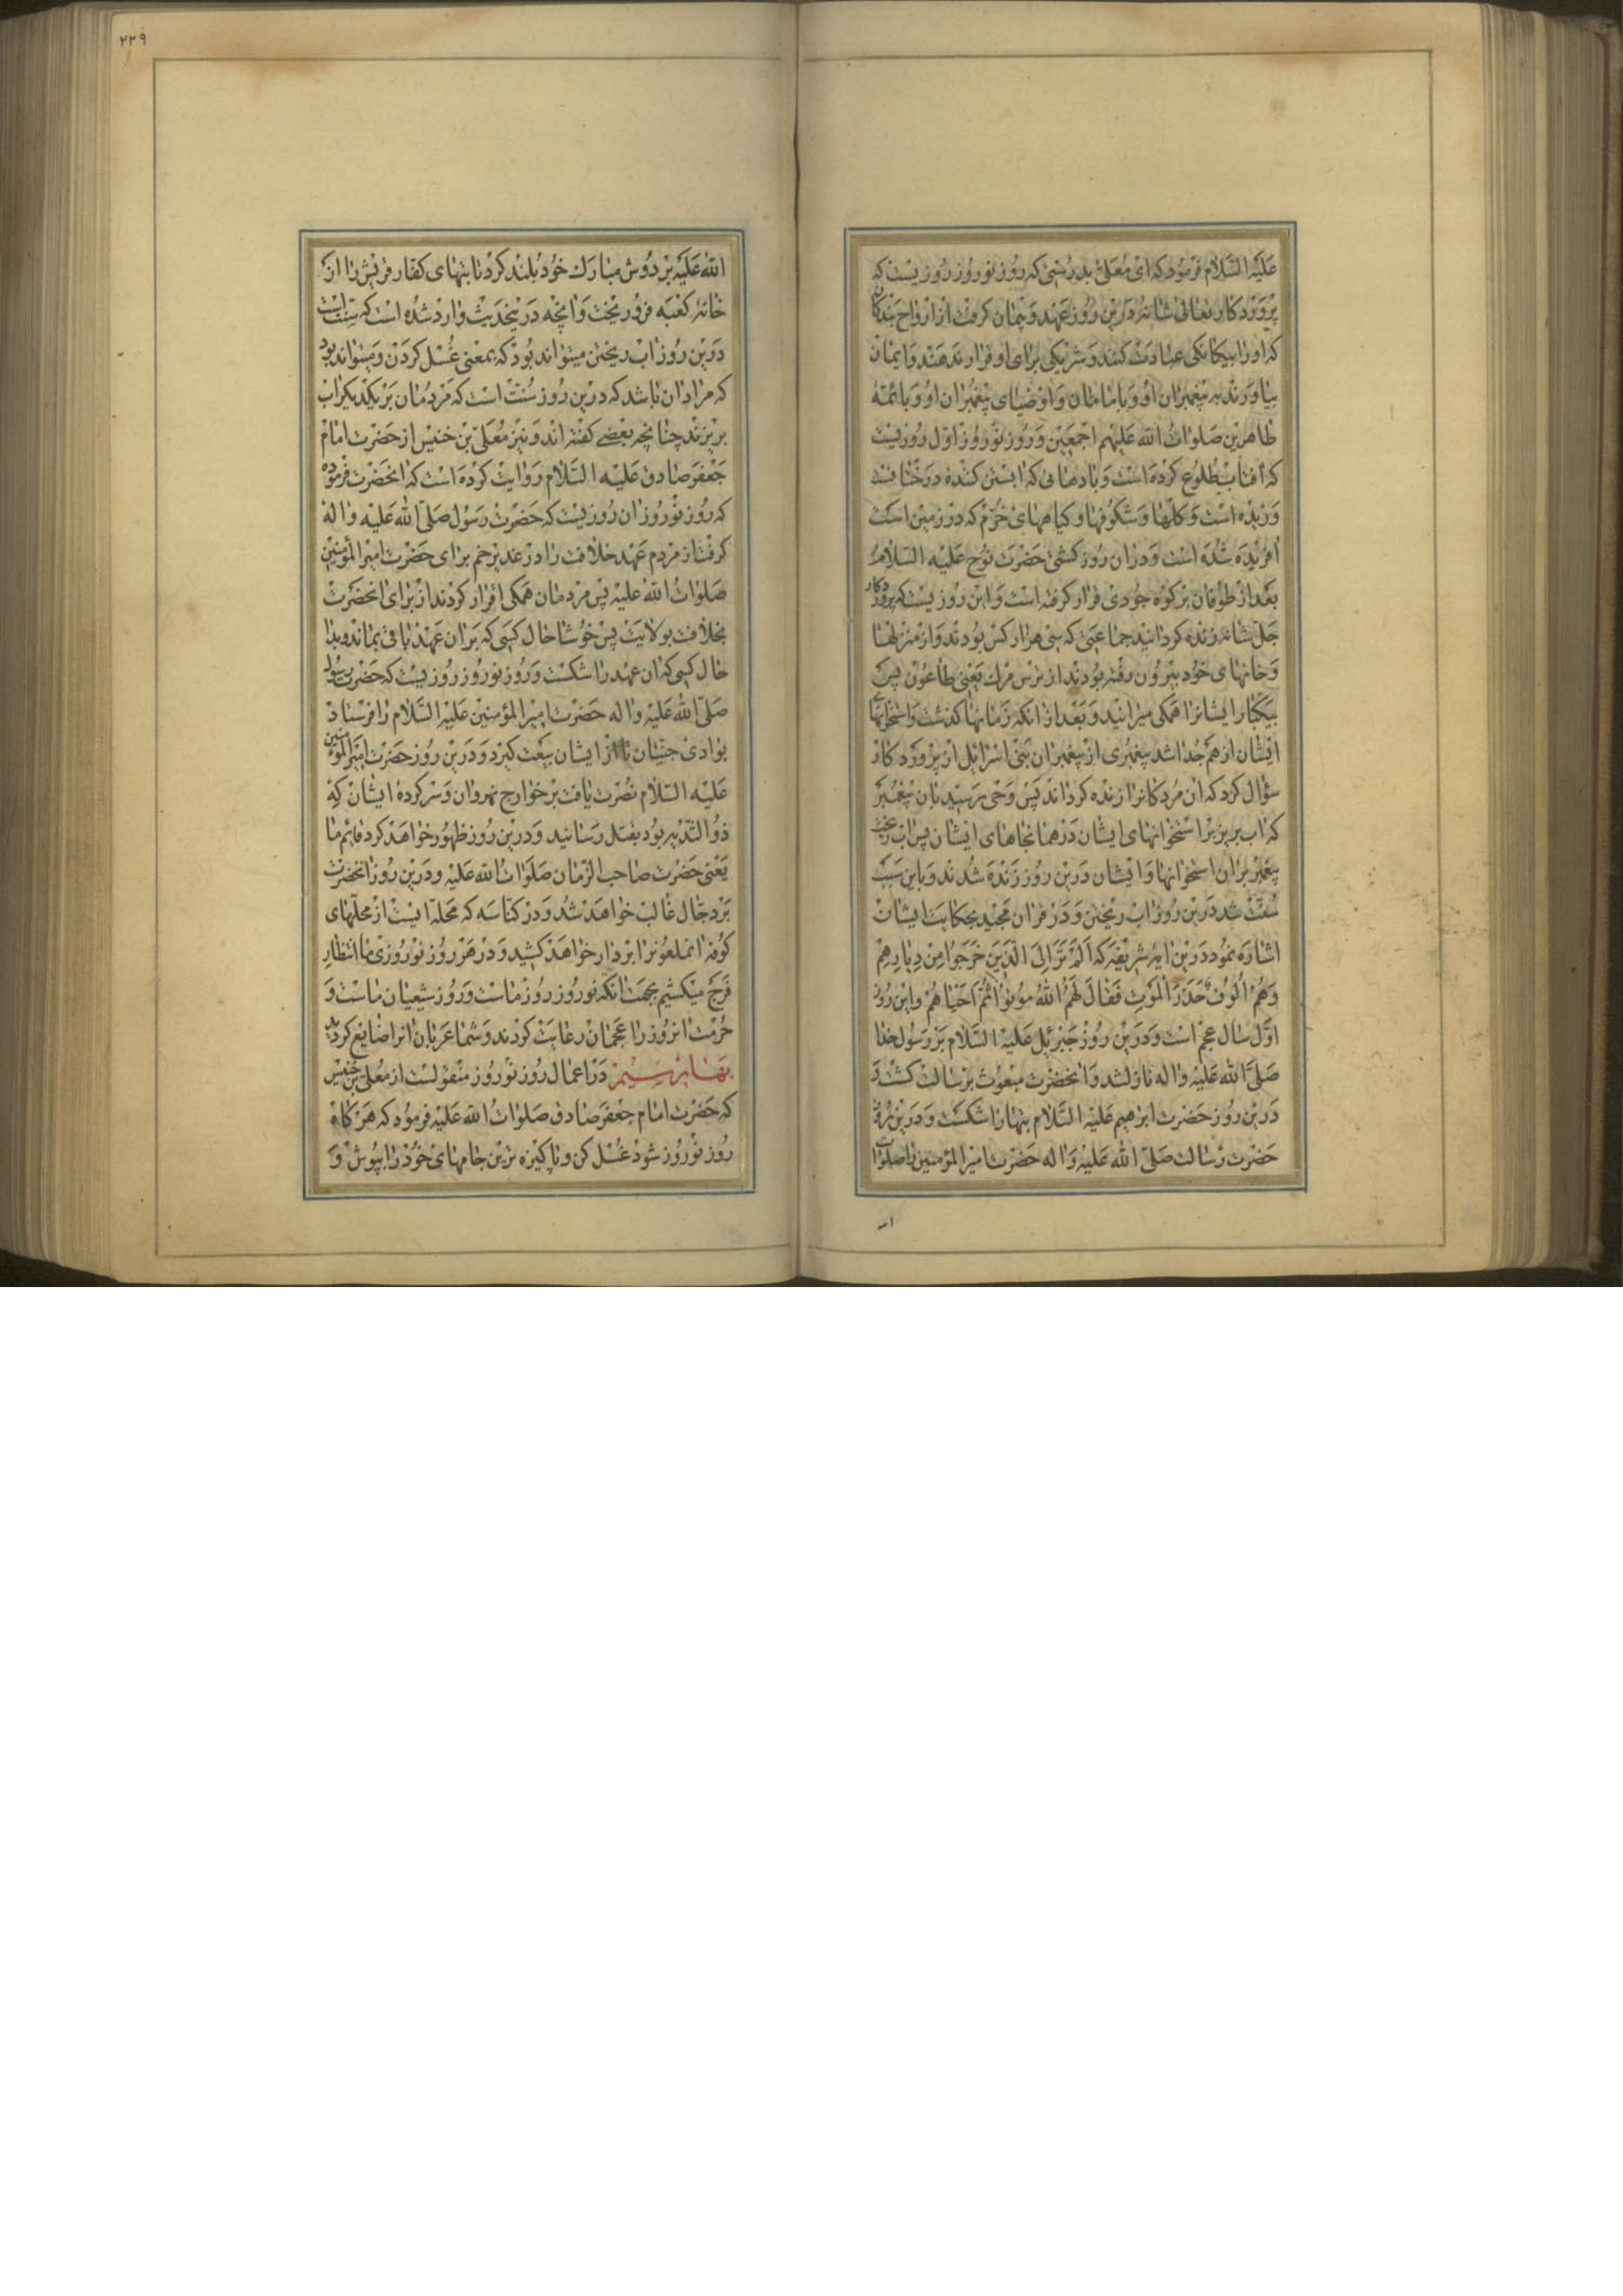 علیه السلام فرمود که ای معلی بدرستی که روز نوروز روزیست که
پروردکار تعالی شانه درین روز عهد و پیمان کرفت از ارواح بندکان
که او را بیکانکی عبادت کنند و شریکی برای او قرار ندهند و ایمان
بیاورند به پیغمبران او و با امامان و اوصیای پیغمبران او و با ائمهٔ
طاهرین صلوات الله علیهم اجمعین و روز نوروز اول روزیست
که افتاب طلوع کرده است و بادهائی که ابستن کنندهٔ درختانست
وزیده است و کلها و شکوفها و کیاههای خرم که در زمین است
افریده شده است و در ان روز کشتی حضرت نوح علیه السلام
بعد از طوفان بر کوه جودی قرار کرفته است و این روزیست که پروردکار
جل شانه زنده کردانید جماعتی که سی هزار کس بودند و از منزلها
و خانهای خود بیرون رفته بودند از ترس مرك یعنی طاعون پس
بیکبار ایشانرا همکی میرانید و بعد از انکه زمانها کذشت و استخوانهای
ایشان از هم جدا شد پیغمبری از پیغمبران بنی اسرائیل از پروردکار
سؤال کرد که ان مردکانرا زنده کرداند پس وحی رسید بان پیغمبر
که اب بریز بر استخوانهای ایشان در همانجاهای ایشان پس اب ریخت
پیغمبر بران استخوانها و ایشان درین روز زنده شدند و باین سبب
سنت شد درین روز اب ریختن و در قران مجید بحکایت ایشان
اشاره نمود درین ایه شریفه که الم تر الی الذین خرجوا من دیارهم
وهم الوف حذر الموت فقال لهم الله موتوا ثم احیاهم و این روز
اول سال عجم است و درین روز جبرئیل علیه السلام بر رسول خدا
صلی الله علیه واله نازل شد و انحضرت مبعوث برسالت کشت و
درین روز حضرت ابرهیم علیه السلام بتها را شکست و درین روز
حضرت رسالت صلی الله علیه و اله حضرت امیر المؤمنین را صلوات
ا
۲۲۹
الله علیه بر دوش مبارك خود بلند کرد تا بتهای کفار قریش را از
خانهٔ کعبه فرو ریخت و انچه درینحدیث وارد شده است که سنت است
درین روز اب ریختن میتواند بود که بمعنی غسل کردن و میتواند بود
که مراد ان باشد که درین روز سنت است که مردمان بر یکدیکر اب
بریزند چنانچه بعضی کفته اند و نیز معلی بن خنیس از حضرت امام
جعفر صادق علیه السلام روایت کرده است که انحضرت فرموده
که روز نوروز ان روزیست که حضرت رسول صلی الله علیه واله
کرفت از مردم عهد خلافت را در غدیر خم برای حضرت امیر المؤمنین
صلوات الله علیه پس مردمان همکی اقرار کردند از برای انحضرت
بخلافت بولایت پس خوشا حال کسی که بران عهد باقی بماند و بدا
حال کسی که ان عهد را شکست و روز نوروز روزیست که حضرت رسول
صلی الله علیه واله حضرت امیر المؤمنین علیه السلام را فرستاد
بوادی جنیان تا از ایشان بیعت کیرد و درین روز حضرت امیر المؤمنین
علیه السلام نصرت یافت بر خوارج نهروان و سر کردهٔ ایشان که
ذو الثدیه بود بقتل رسانید و درین روز ظهور خواهد کرد قایم ما
یعنی حضرت صاحب الزمان صلوات الله علیه و درین روز انحضرت
بر دجال غالب خواهد شد و در کناسه که محله ایست از محلهای
کوفه انملعونرا بر دار خواهد کشید و در هر روز نوروزی ما انتظار
فرج میکشیم بجهت انکه نوروز روز ماست و روز شیعیان ماست و
حرمت انروز را عجمان رعایت کردند و شما عربان انرا ضایع کردید
بهار سیم در اعمال روز نوروز منقولست از معلی بن خنیس
که حضرت امام جعفر صادق صلوات الله علیه فرمود که هر کاه
روز نوروز شود غسل کن و پاکیزه ترین جامهای خود را بپوش و